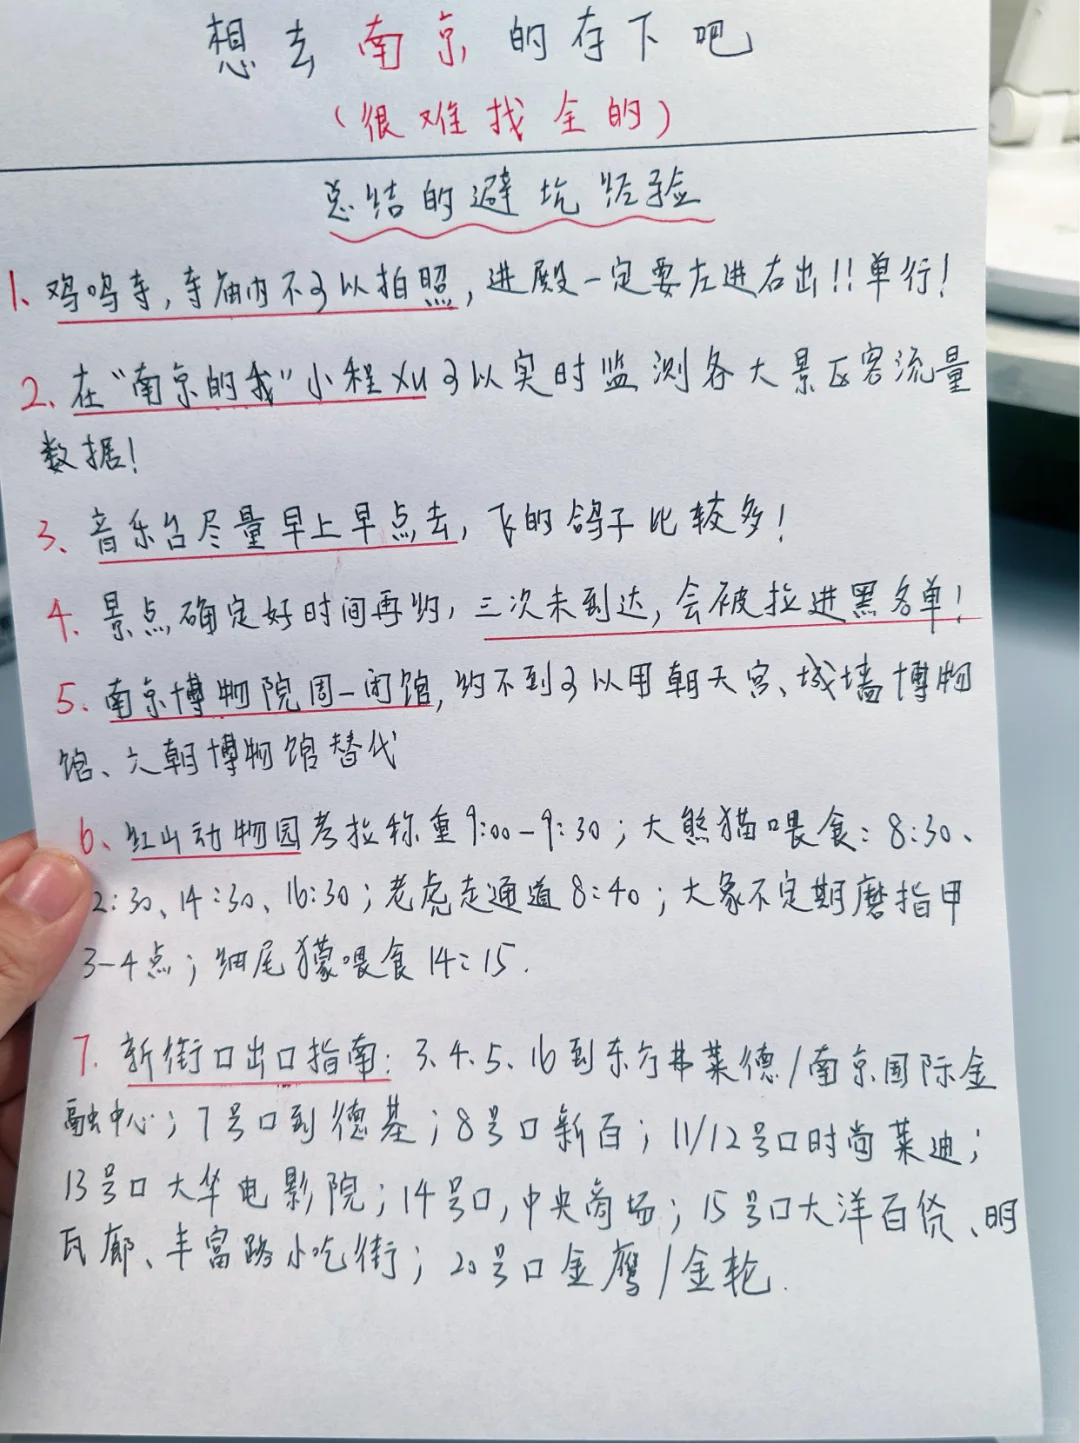 想去南京的存下吧
(很难找全的)
总结的避坑经验
1、鸡鸣寺,寺庙内不可以拍照,进殿一定要左进右出!!单行!
2、在“南京的我”小程xu可以实时监测各大景区客流量
数据!
3、音乐台尽量早上早点去,飞的鸽子比较多!
4、景点确定好时间再约,三次未到达,会被拉进黑名单!
5、南京博物院周一闭馆,约不到可以用朝天宫、城墙博物
馆、六朝博物馆替代
6、红山动物园考拉称重9:00-9:30;大熊猫喂食:8:30、
2:30、14:30、16:30;老虎走通道8:40;大象不定期磨指甲
3-4点;细尾獴喂食14:15.
7.新街口出口指南:3.4.5.16到东方弗莱德/南京国际金
融中心;7号口到德基;8号口新百;11/12号口时尚莱迪;
13号口大华电影院;14号口,中央商场;15号口大洋百货、明
瓦廊、丰富路小吃街;20号口金鹰/金轮.